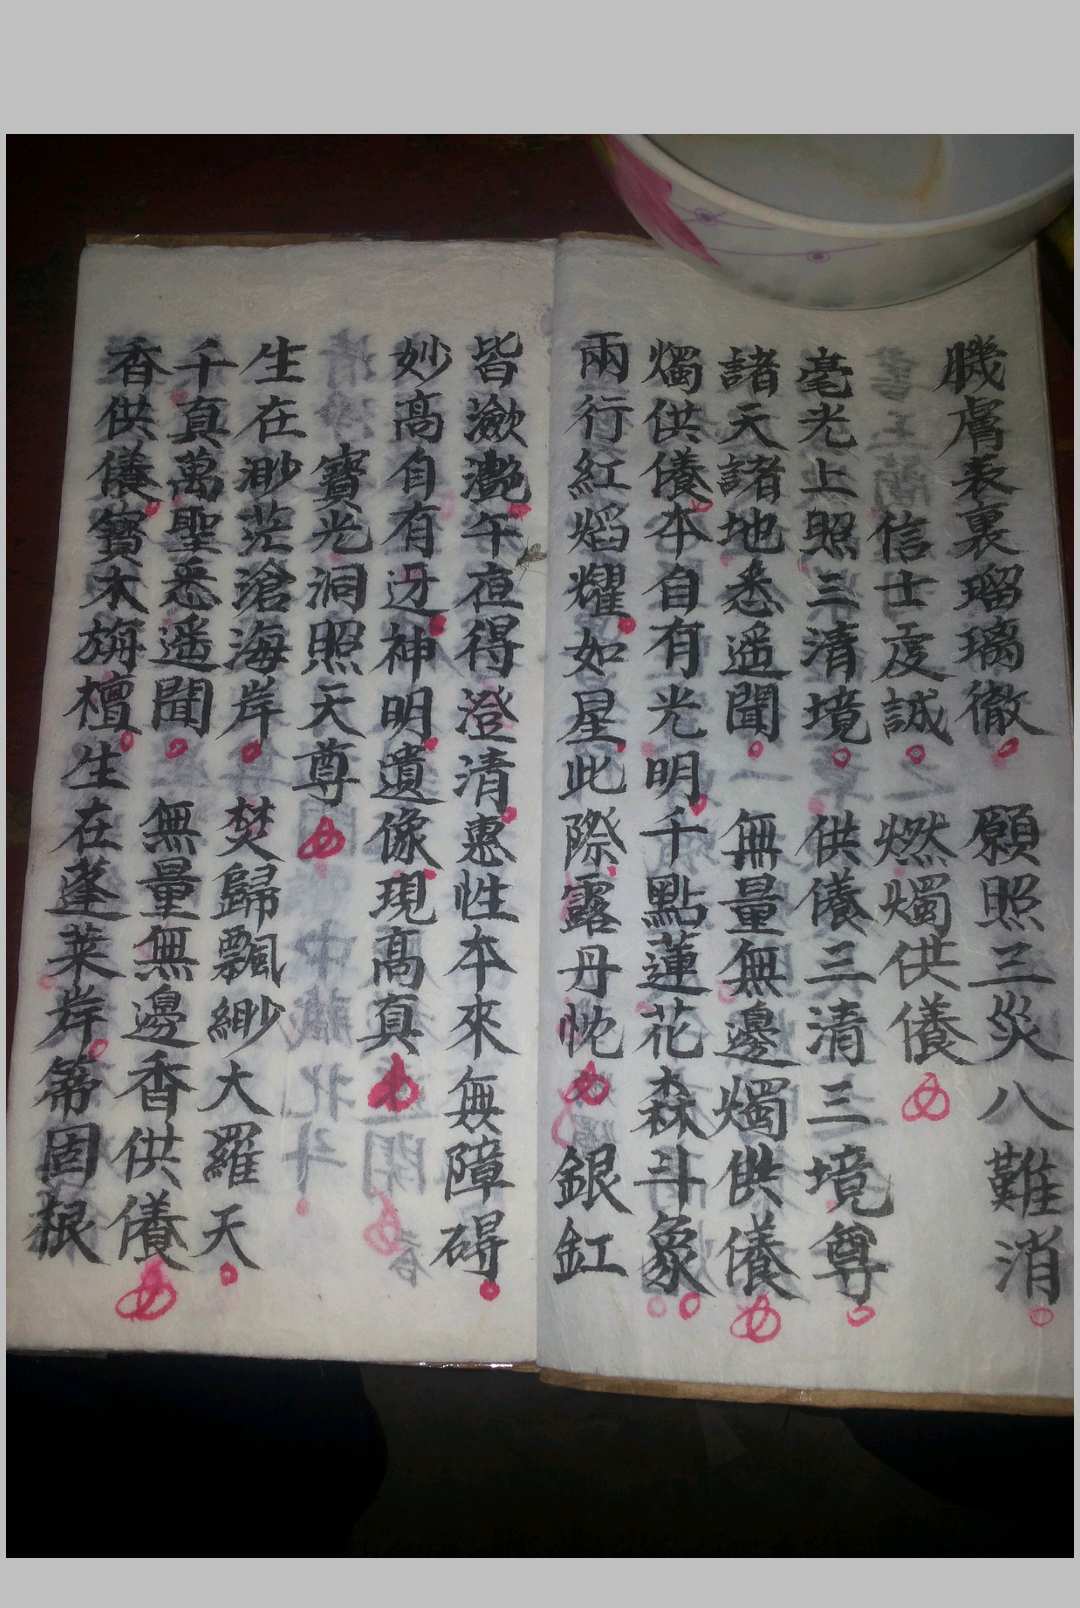 膱膚表裏瑠璃徹 願照三災八難消
信士虔誠 燃燭供養
毫光上照三清境 供養三清三境尊
諸天諸地悉遥聞 無量無邊燭供養
燭供養本自有光明千點蓮花森斗象
兩行紅焰耀如星此際露丹忱 銀缸
皆瀲灧午夜得澄清惠性本來無障碍
妙高自有迓神明遺像現高真
寶光洞照天尊
生在渺茫滄海岸 焚歸飄緲大羅天
千真萬聖悉遥聞 無量無邊香供養
香供養寶木旃檀生在蓬萊岸 固根